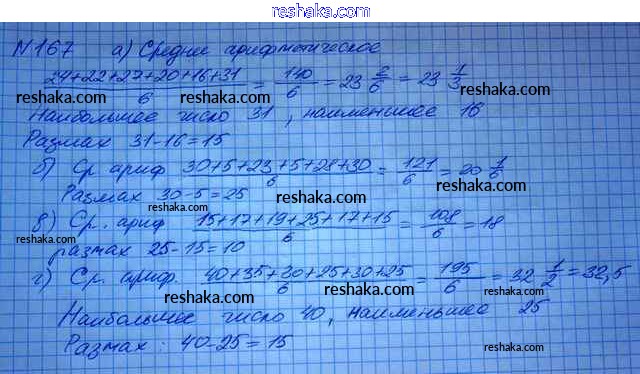 reshaka.com
№167 а) Среднее арифметическое
24+22+27+20+16+31 / 6 = 140 / 6 = 23 2/6 = 23 1/3
reshaka.com reshaka.com reshaka.com
Наибольшее число 31, наименьшее 16
Размах 31-16=15
reshaka.com reshaka.com reshaka.com
б) Ср. ариф 30+5+23+5+28+30 / 6 = 121 / 6 = 20 1/6
Размах 30-5=25
reshaka.com reshaka.com reshaka.com
в) Ср. ариф 15+17+19+25+17+15 / 6 = 108 / 6 = 18
размах 25-15=10
reshaka.com reshaka.com reshaka.com
г) Ср. ариф. 40+35+30+25+30+25 / 6 = 195 / 6 = 32 1/2 = 32,5
reshaka.com reshaka.com
Наибольшее число 40, наименьшее 25
Размах: 40-25=15
reshaka.com reshaka.com